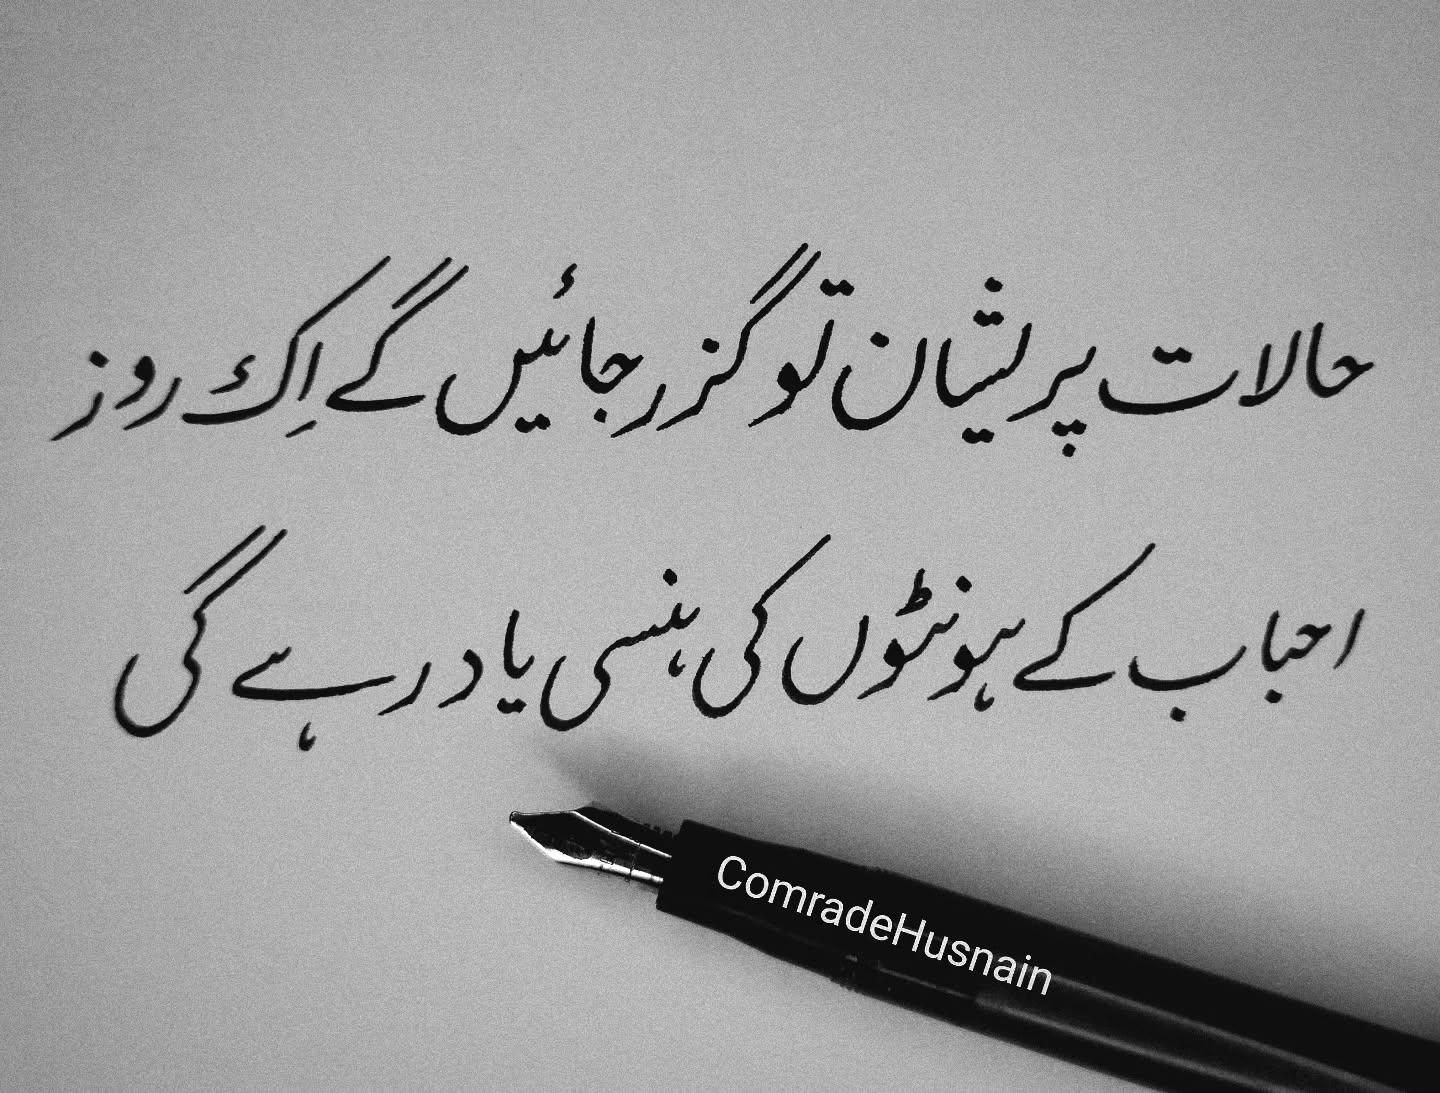 حالات پریشان تو گزر جائیں گے اِک روز
احباب کے ہونٹوں کی ہنسی یاد رہے گی
ComradeHusnain